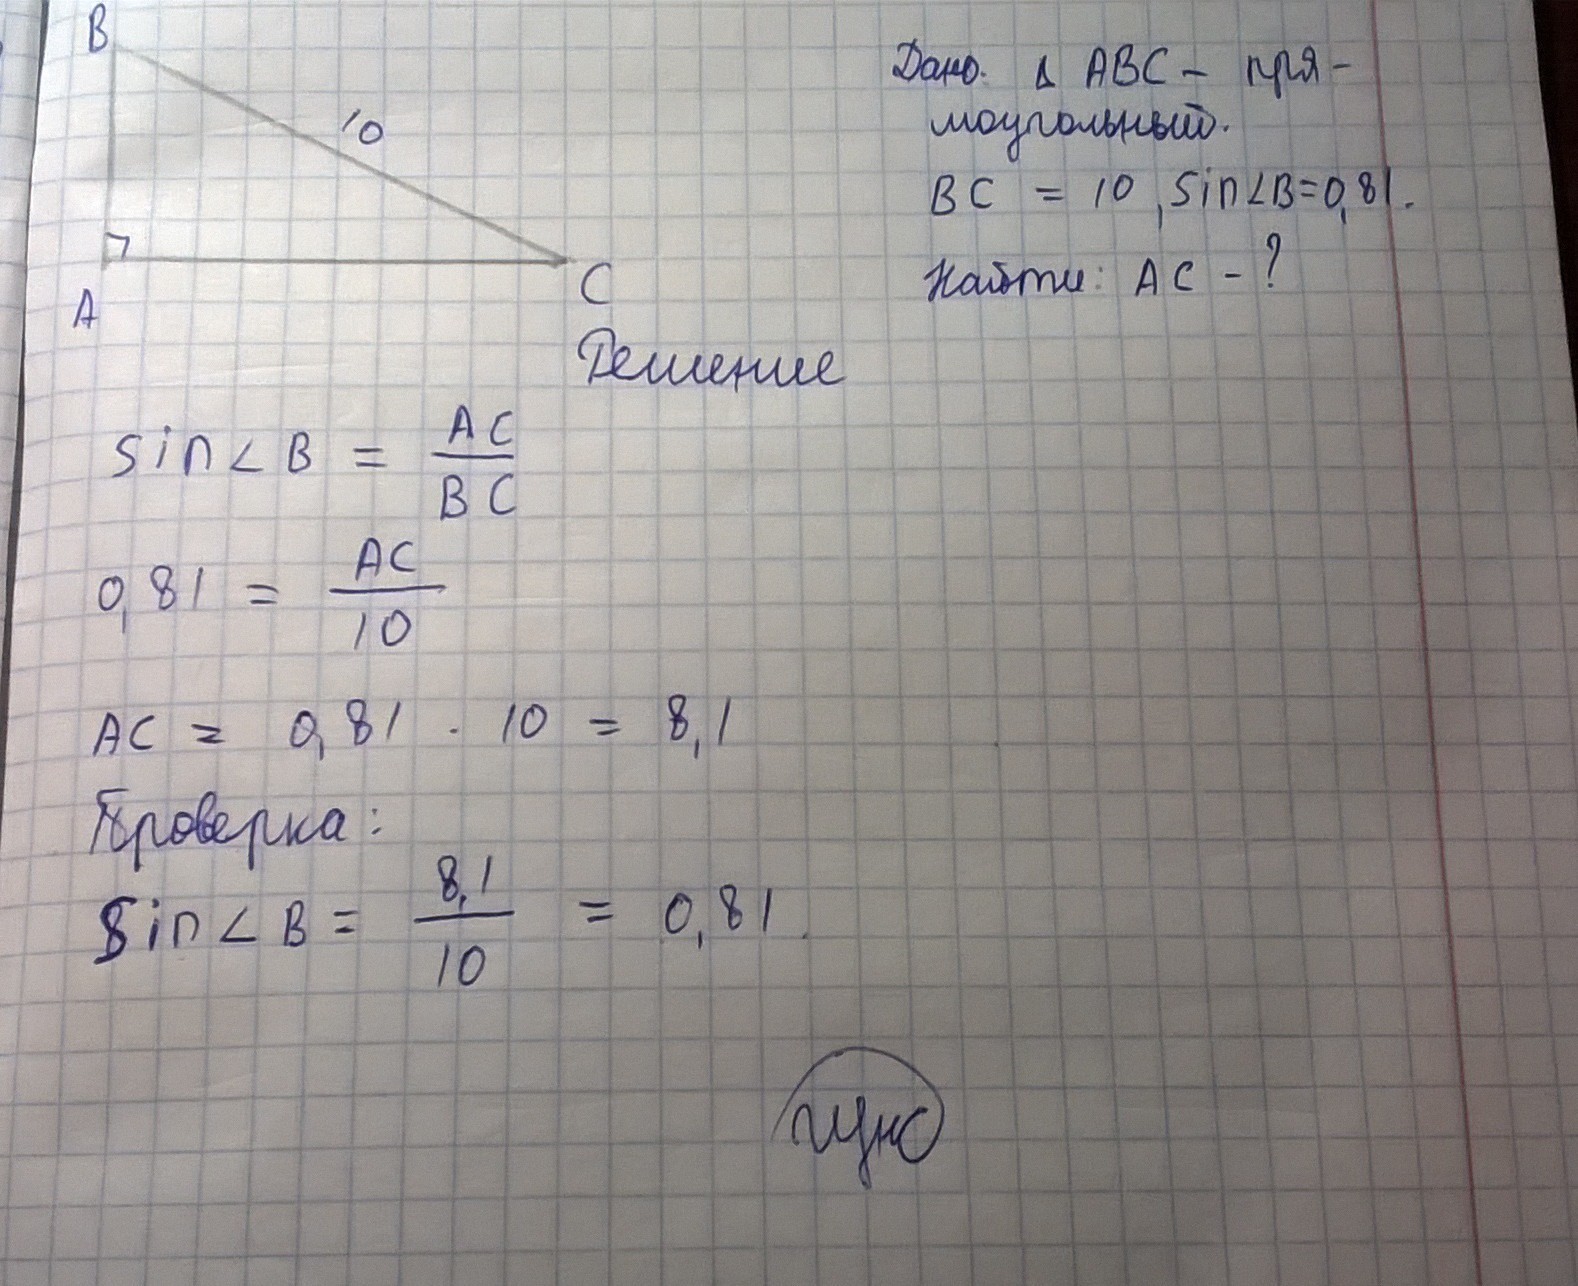 B
10
A
C
Дано: Δ ABC - пря-
моугольный.
BC = 10, sin∠B=0,81.
Найти: AC - ?
Решение
sin∠B = AC/BC
0,81 = AC/10
AC = 0,81 · 10 = 8,1
Проверка:
Sin∠B = 8,1/10 = 0,81.